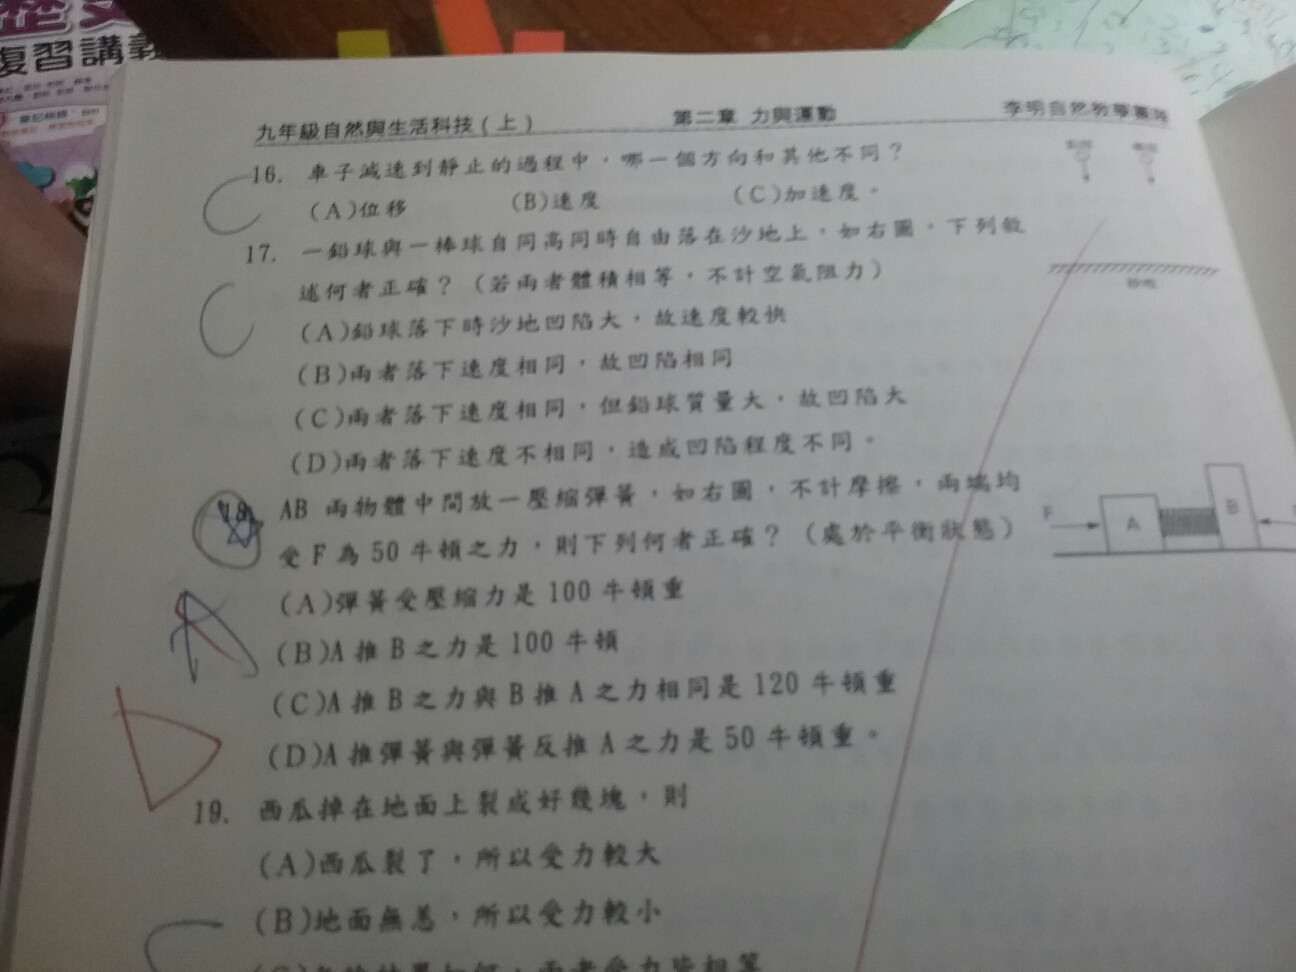 複習講義
九年級自然與生活科技(上) 第二章 力與運動 李明自然教學團隊
16. 車子減速到靜止的過程中，哪一個方向和其他不同？
(A)位移 (B)速度 (C)加速度。
17. 一鉛球與一棒球自同高同時自由落在沙地上，如右圖，下列敘
述何者正確？（若兩者體積相等，不計空氣阻力）
(A)鉛球落下時沙地凹陷大，故速度較快
(B)兩者落下速度相同，故凹陷相同
(C)兩者落下速度相同，但鉛球質量大，故凹陷大
(D)兩者落下速度不相同，造成凹陷程度不同。
18 AB 兩物體中間放一壓縮彈簧，如右圖，不計摩擦，兩端均
受 F 為 50 牛頓之力，則下列何者正確？（處於平衡狀態）
(A)彈簧受壓縮力是 100 牛頓重
(B)A 推 B 之力是 100 牛頓
(C)A 推 B 之力與 B 推 A 之力相同是 120 牛頓重
(D)A 推彈簧與彈簧反推 A 之力是 50 牛頓重。
F A B
19. 西瓜掉在地面上裂成好幾塊，則
(A)西瓜裂了，所以受力較大
(B)地面無恙，所以受力較小
C
C
D